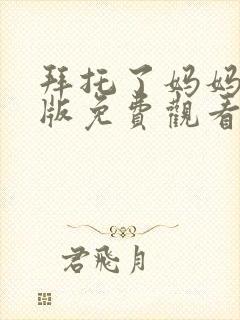 拜托了妈妈
版免費觀看
君飛月